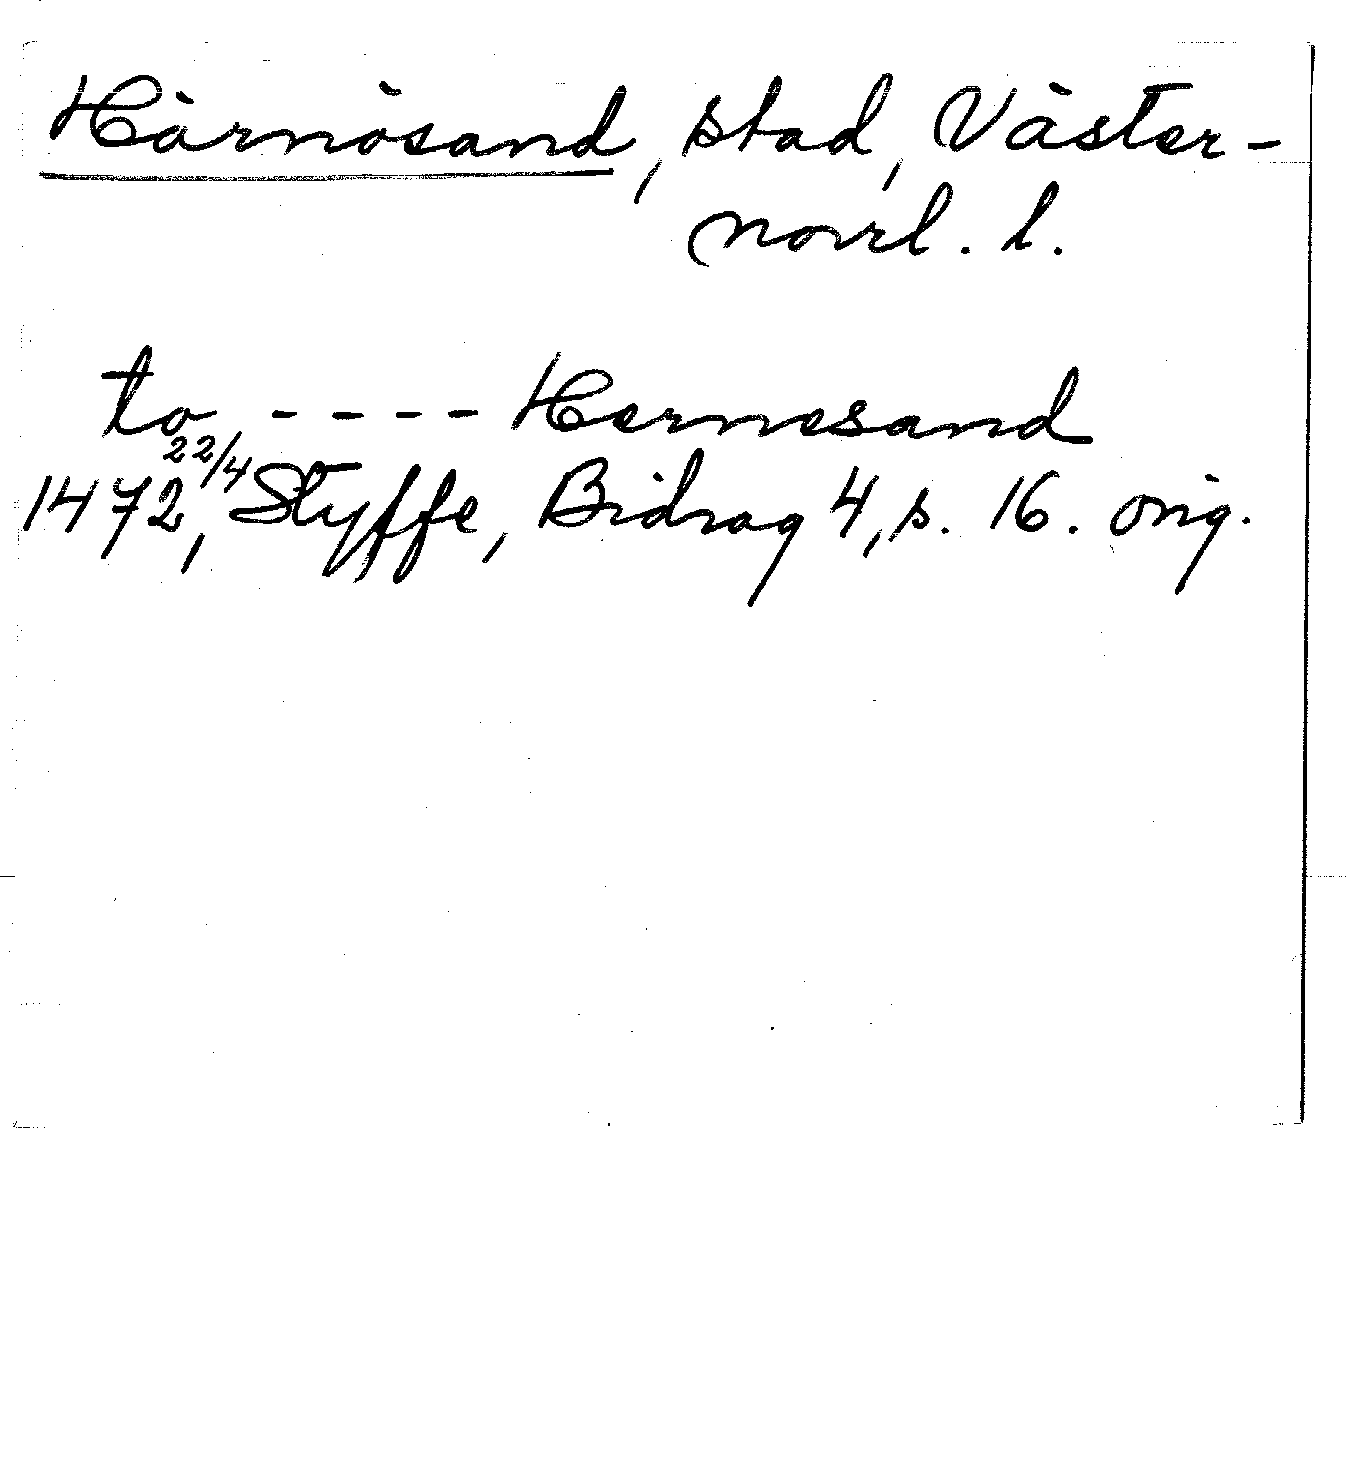 Härnösand, stad, Väster-
norrl. l.
to ---- Hernesand
1472 22/4, Styffe, Bidrag 4, s. 16. orig.